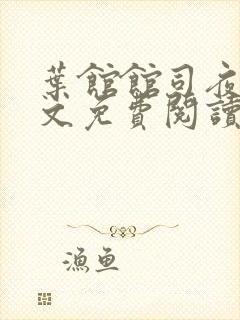 葉館館司夜
文免費閱讀
漁魚